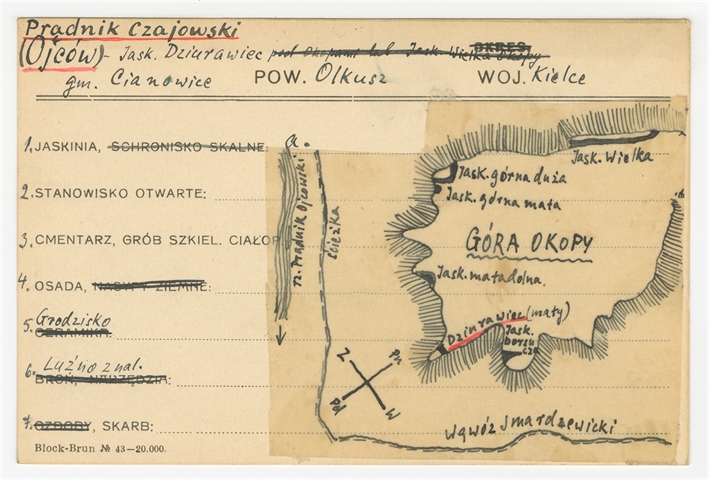 Prądnik Czajowski
(Ojców) - Jask. Dziurawiec pod Okopami lub Jask. Wielka Okopy
OKRES
gm. Cianowice POW. Olkusz WOJ. Kielce
1. JASKINIA, SCHRONISKO SKALNE: a.
2. STANOWISKO OTWARTE:
3. CMENTARZ, GRÓB SZKIEL. CIAŁOP
4. OSADA, NASYPY ZIEMNE:
5. Grodzisko
CERAMIKA:
6. Luźno znal.
BROŃ, NARZĘDZIA:
7. OZDOBY, SKARB:
Block-Brun № 43-20.000.
rz. Prądnik Ojcowski
ścieżka
Jask. Wielka
Jask. górna duża
Jask. górna mała
GÓRA OKOPY
Jask. mała dolna.
Dziurawiec (mały)
Jask.
borsu
cza
Z
Pn
Pd
W
Wąwóz Smardzewicki